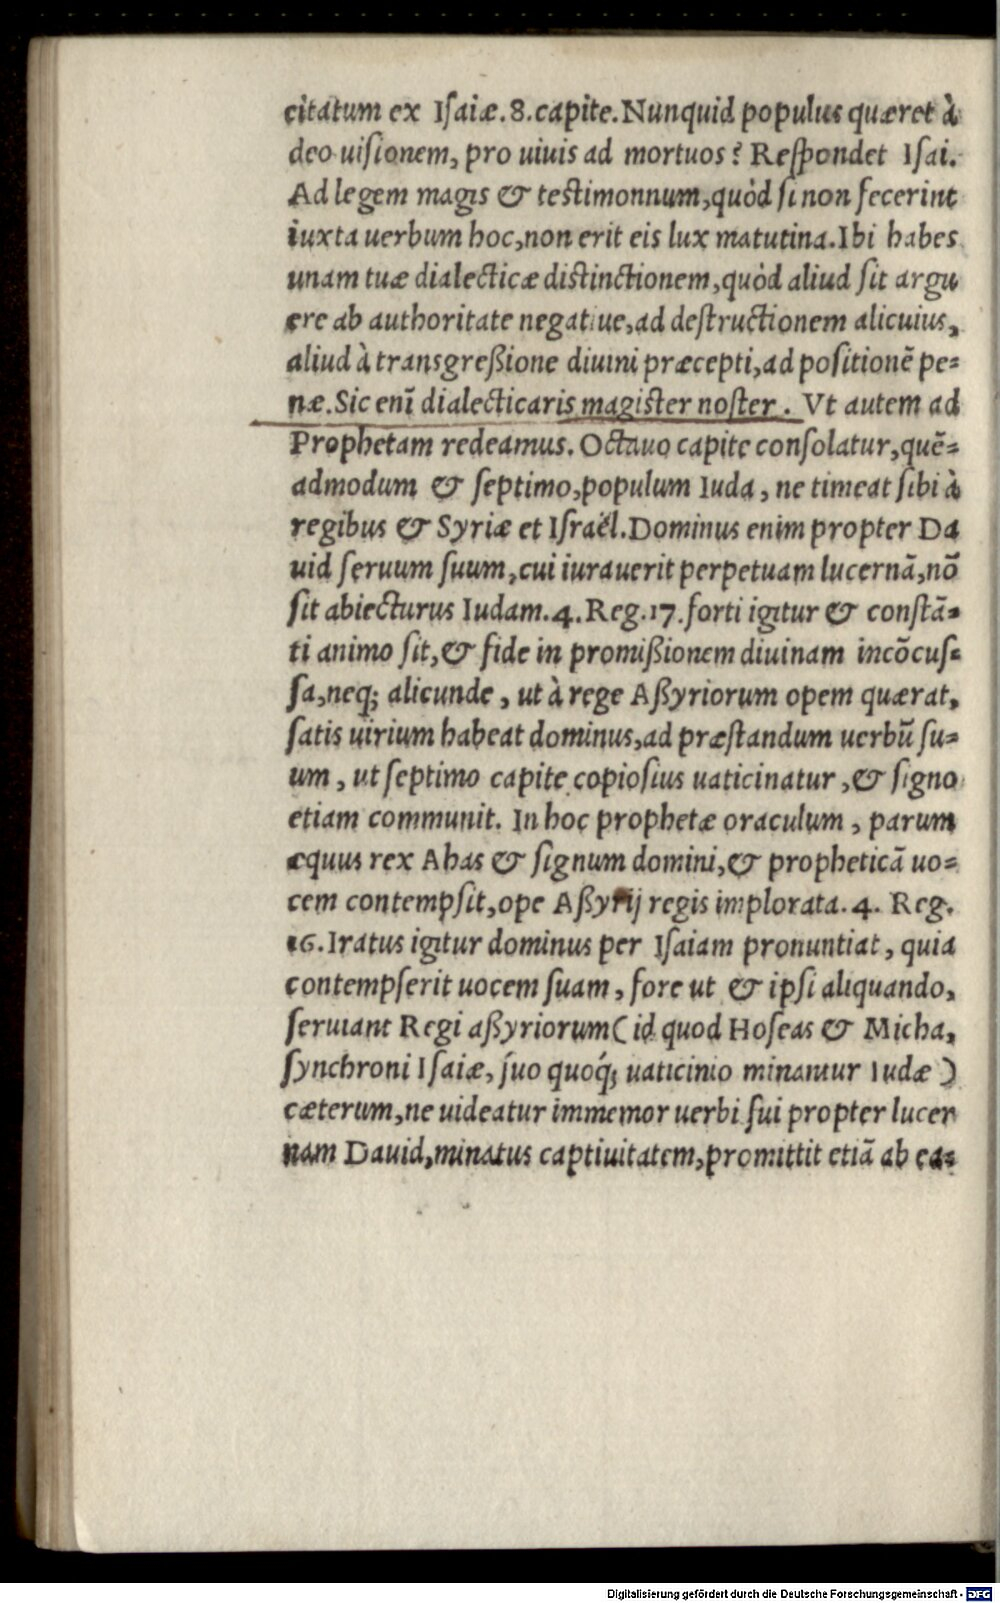 citatum ex Iſaiæ.8.capite.Nunquid populus quæret à
deo uiſionem, pro uiuis ad mortuos? Reſpondet Iſai.
Ad legem magis & teſtimonnum,quòd ſi non fecerint
iuxta uerbum hoc,non erit eis lux matutina.Ibi habes
unam tuæ dialecticæ diſtinctionem,quòd aliud ſit argu
ere ab authoritate negatiue,ad deſtructionem alicuius,
aliud à transgreßione diuini præcepti,ad poſitionē pe=
næ.Sic enī dialecticaris magiſter noſter. Vt autem ad
Prophetam redeamus. Octauo capite conſolatur,quē=
admodum & ſeptimo,populum Iuda, ne timeat ſibi à
regibus & Syriæ et Iſraël.Dominus enim propter Da
uid ſeruum ſuum,cui iurauerit perpetuam lucernā,nō
ſit abiecturus Iudam.4.Reg.17.forti igitur & conſtā=
ti animo ſit,& fide in promißionem diuinam incōcuſ=
ſa,neq; alicunde, ut à rege Aßyriorum opem quærat,
ſatis uirium habeat dominus,ad præſtandum uerbū ſu=
um, ut ſeptimo capite copioſius uaticinatur,& ſigno
etiam communit. In hoc prophetæ oraculum, parum
æquus rex Ahas & ſignum domini,& propheticā uo=
cem contempſit,ope Aßyrij regis implorata.4. Reg.
16.Iratus igitur dominus per Iſaiam pronuntiat, quia
contempſerit uocem ſuam, fore ut & ipſi aliquando,
ſeruiant Regi aßyriorum( id quod Hoſeas & Micha,
ſynchroni Iſaiæ, ſuo quoq́; uaticinio minantur Iudæ )
cæterum,ne uideatur immemor uerbi ſui propter lucer
nam Dauid,minatus captiuitatem,promittit etiā ab ea=
Digitalisierung gefördert durch die Deutsche Forschungsgemeinschaft - DFG